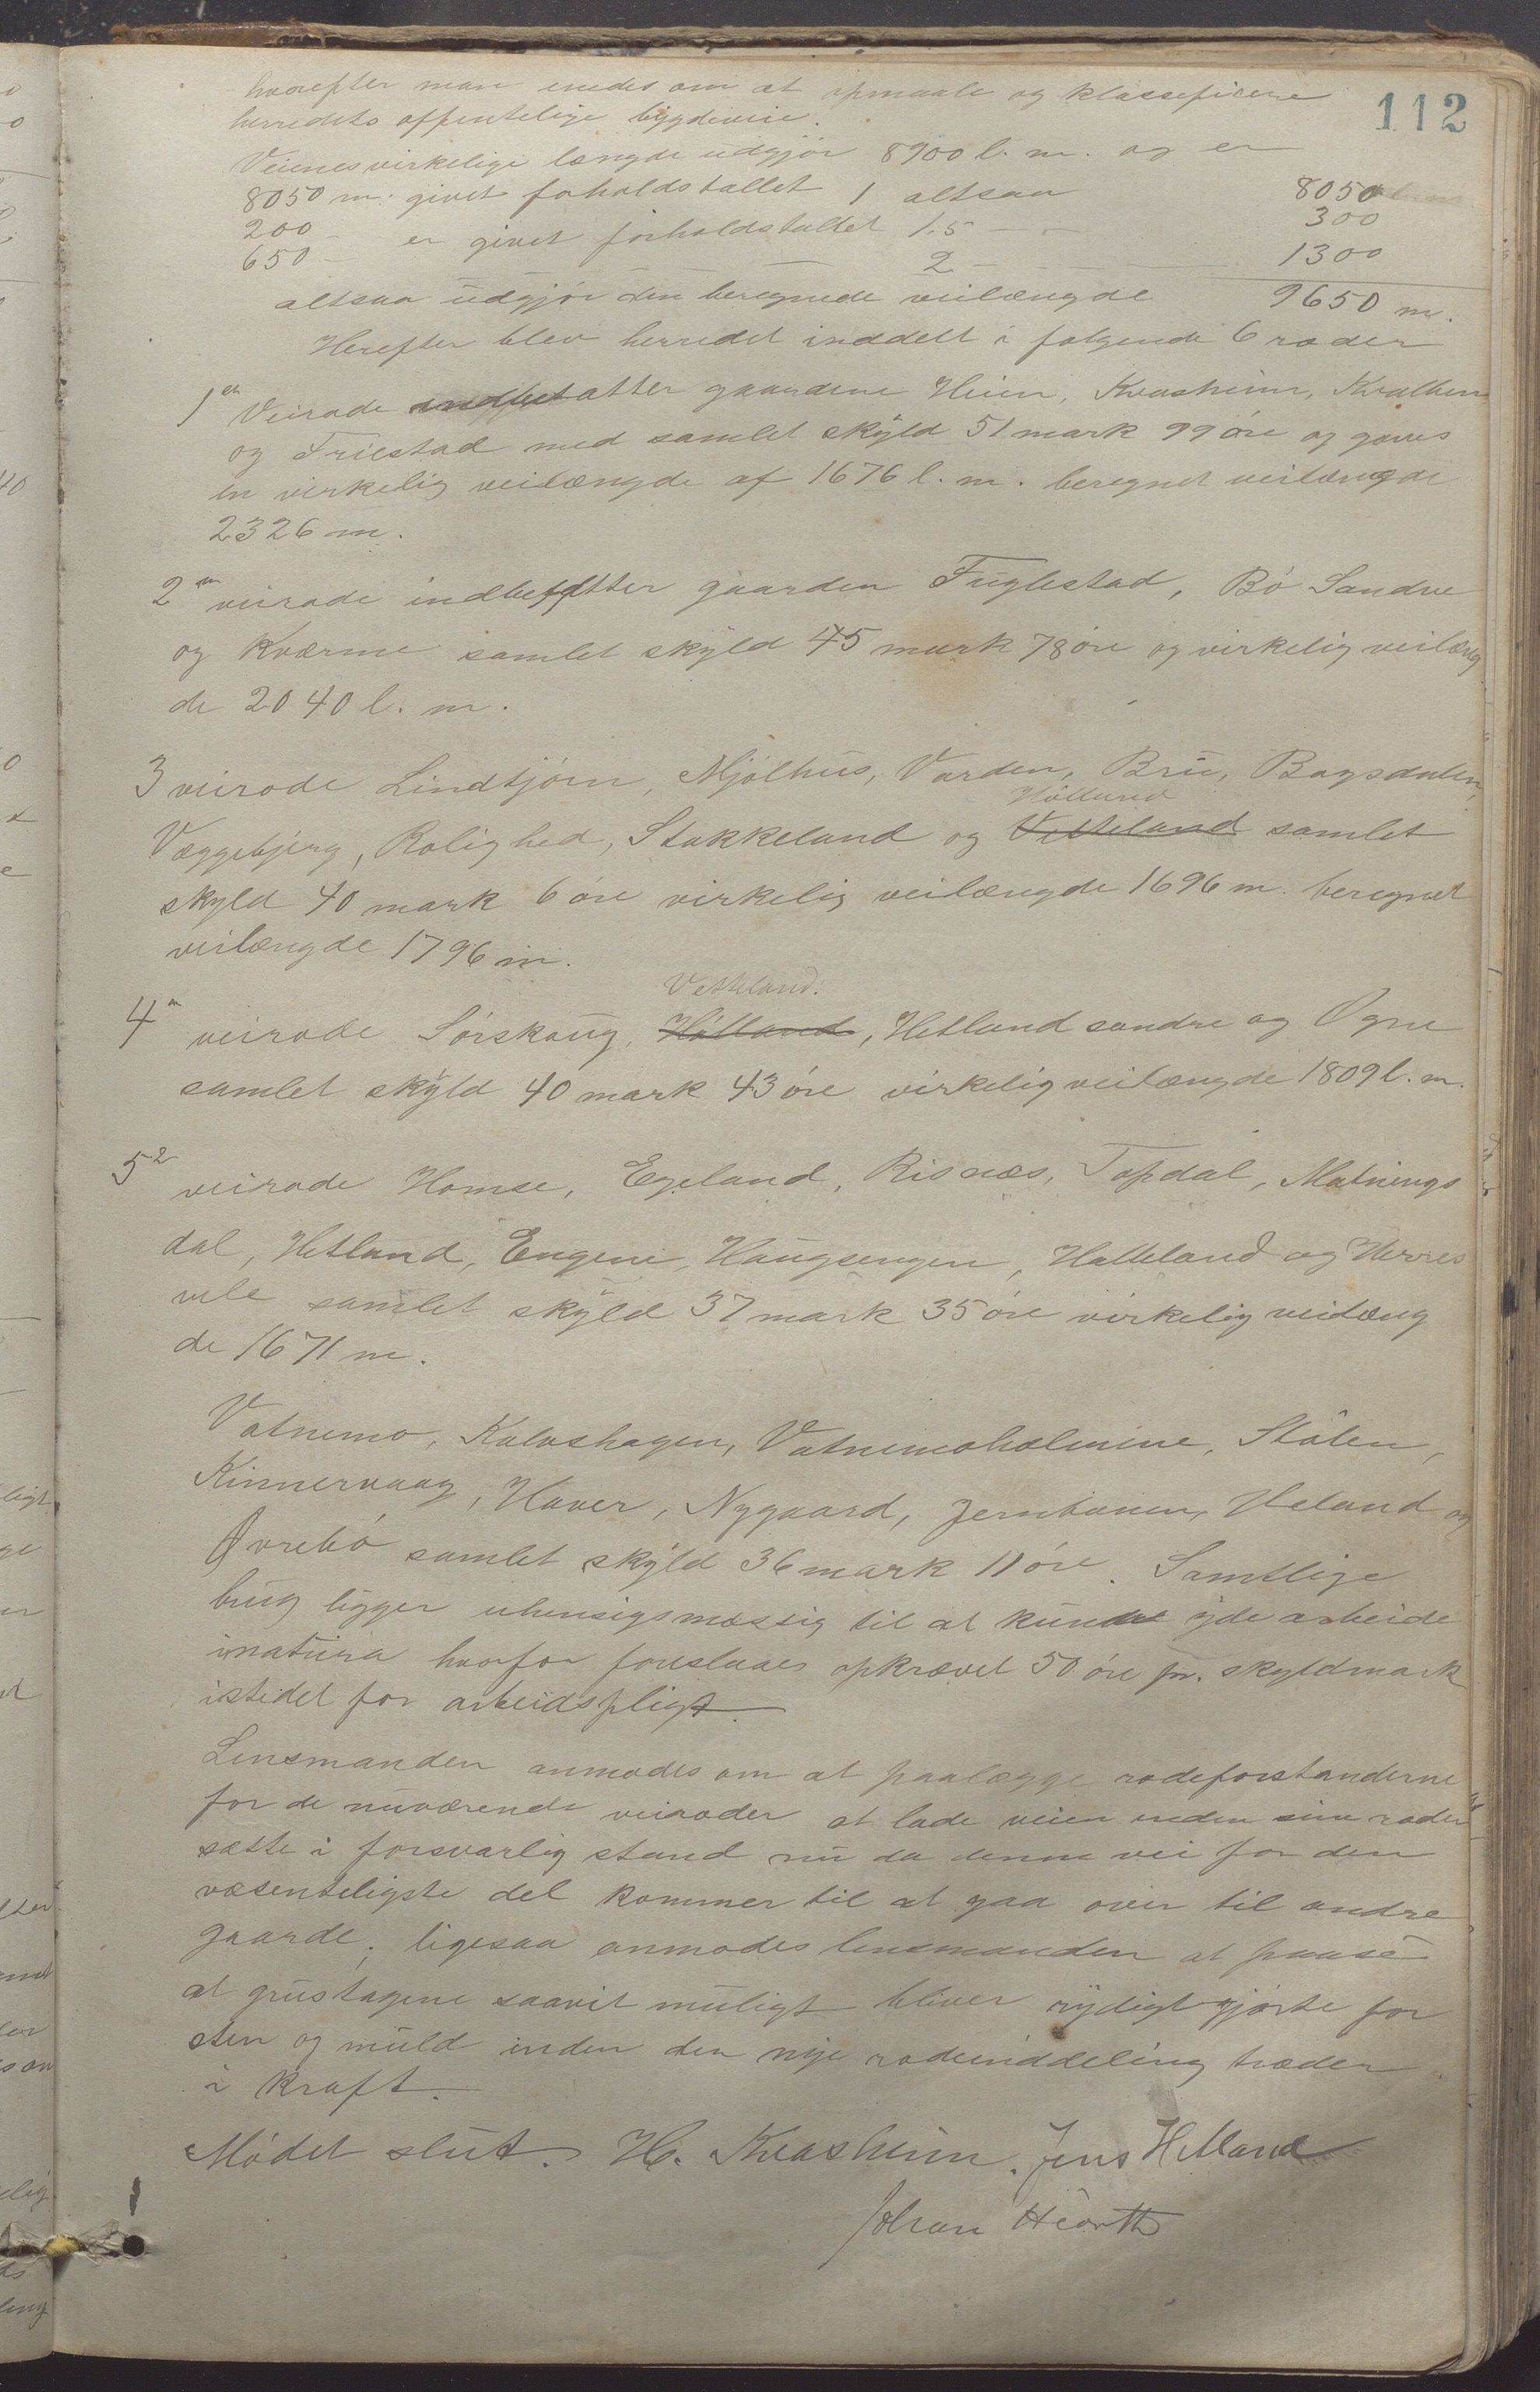 112
hvorefter man enedes om at opmaale og klassificere
herredets offentelige bygdeveie.
Veienes virkelige længde udgjør 8900 l. m. og er
8050 m. givet foholdstallet 1 altsaa 8050
200 - er givet forholdstallet 1.5 - - 300
650 - — — 2 - - 1300
altsaa udgjør den beregnede veilængde 9650 m.
Herefter blev herredet inddelt i følgende 6 roder
1en Veirode indbefatter gaardene Heien, Kvasheim, Kvalbein
og Friestad med samlet skyld 51 mark 99 øre og gives
en virkelig veilængde af 1676 l. m. beregnet veilængde
2326 m.
2en veirode indbefatter gaarden Fuglestad, Bø Sandve
og Kværme samlet skyld 45 mark 78 øre og virkelig veilæng
de 2040 l. m.
3 veirode Lindtjørn, Mjølhus, Varden, Bru, Bagsdalen,
Hølland
Væggebjerg, Rolighed, Stokkeland og Vetteland samlet
skyld 40 mark 6 øre virkelig veilængde 1696 m. beregnet
veilængde 1796 m.
Vetteland.
4n veirode Sørskoug, Hølland, Hetland søndre og Ogne
samlet skyld 40 mark 43 øre virkelig veilængde 1809 l. m.
5 veirode Homse, Egeland, Risnæs, Topdal, Matnings
dal, Hetland, Engene, Haugsengen, Helleland og Herres
vele samlet skyld 37 mark 35 øre virkelig veilæng
de 1671 m.
Vatnemo, Kalvshagen, Vatnemoholmene, Stølen,
Kinnervaag, Haver, Nygaard, Jernbanen, Heland og
Øvrebø samlet skyld 36 mark 11 øre. Samtlige
brug ligger uhensigsmæssig til at kunne yde arbeide
inatura hvorfor foreslaaes opkrævet 50 øre pr. skyldmark
istedet for arbeidspligt.
Lensmanden anmodes om at paalægge rodeforstanderne
for de nuværende veiroder at lade veien inden sine roder
sætte i forsvarlig stand nu da denne vei for den
væsenteligste del kommer til at gaa over til andre
gaarde, ligesaa anmodes lensmanden at paase
at grustagene saavit muligt bliver rydigtgjørte for
sten og muld inden den nye rodeinddeling træder
i kraft.
Mødet slut. H. Kvasheim. Jens Hetland
Johan Hiorth